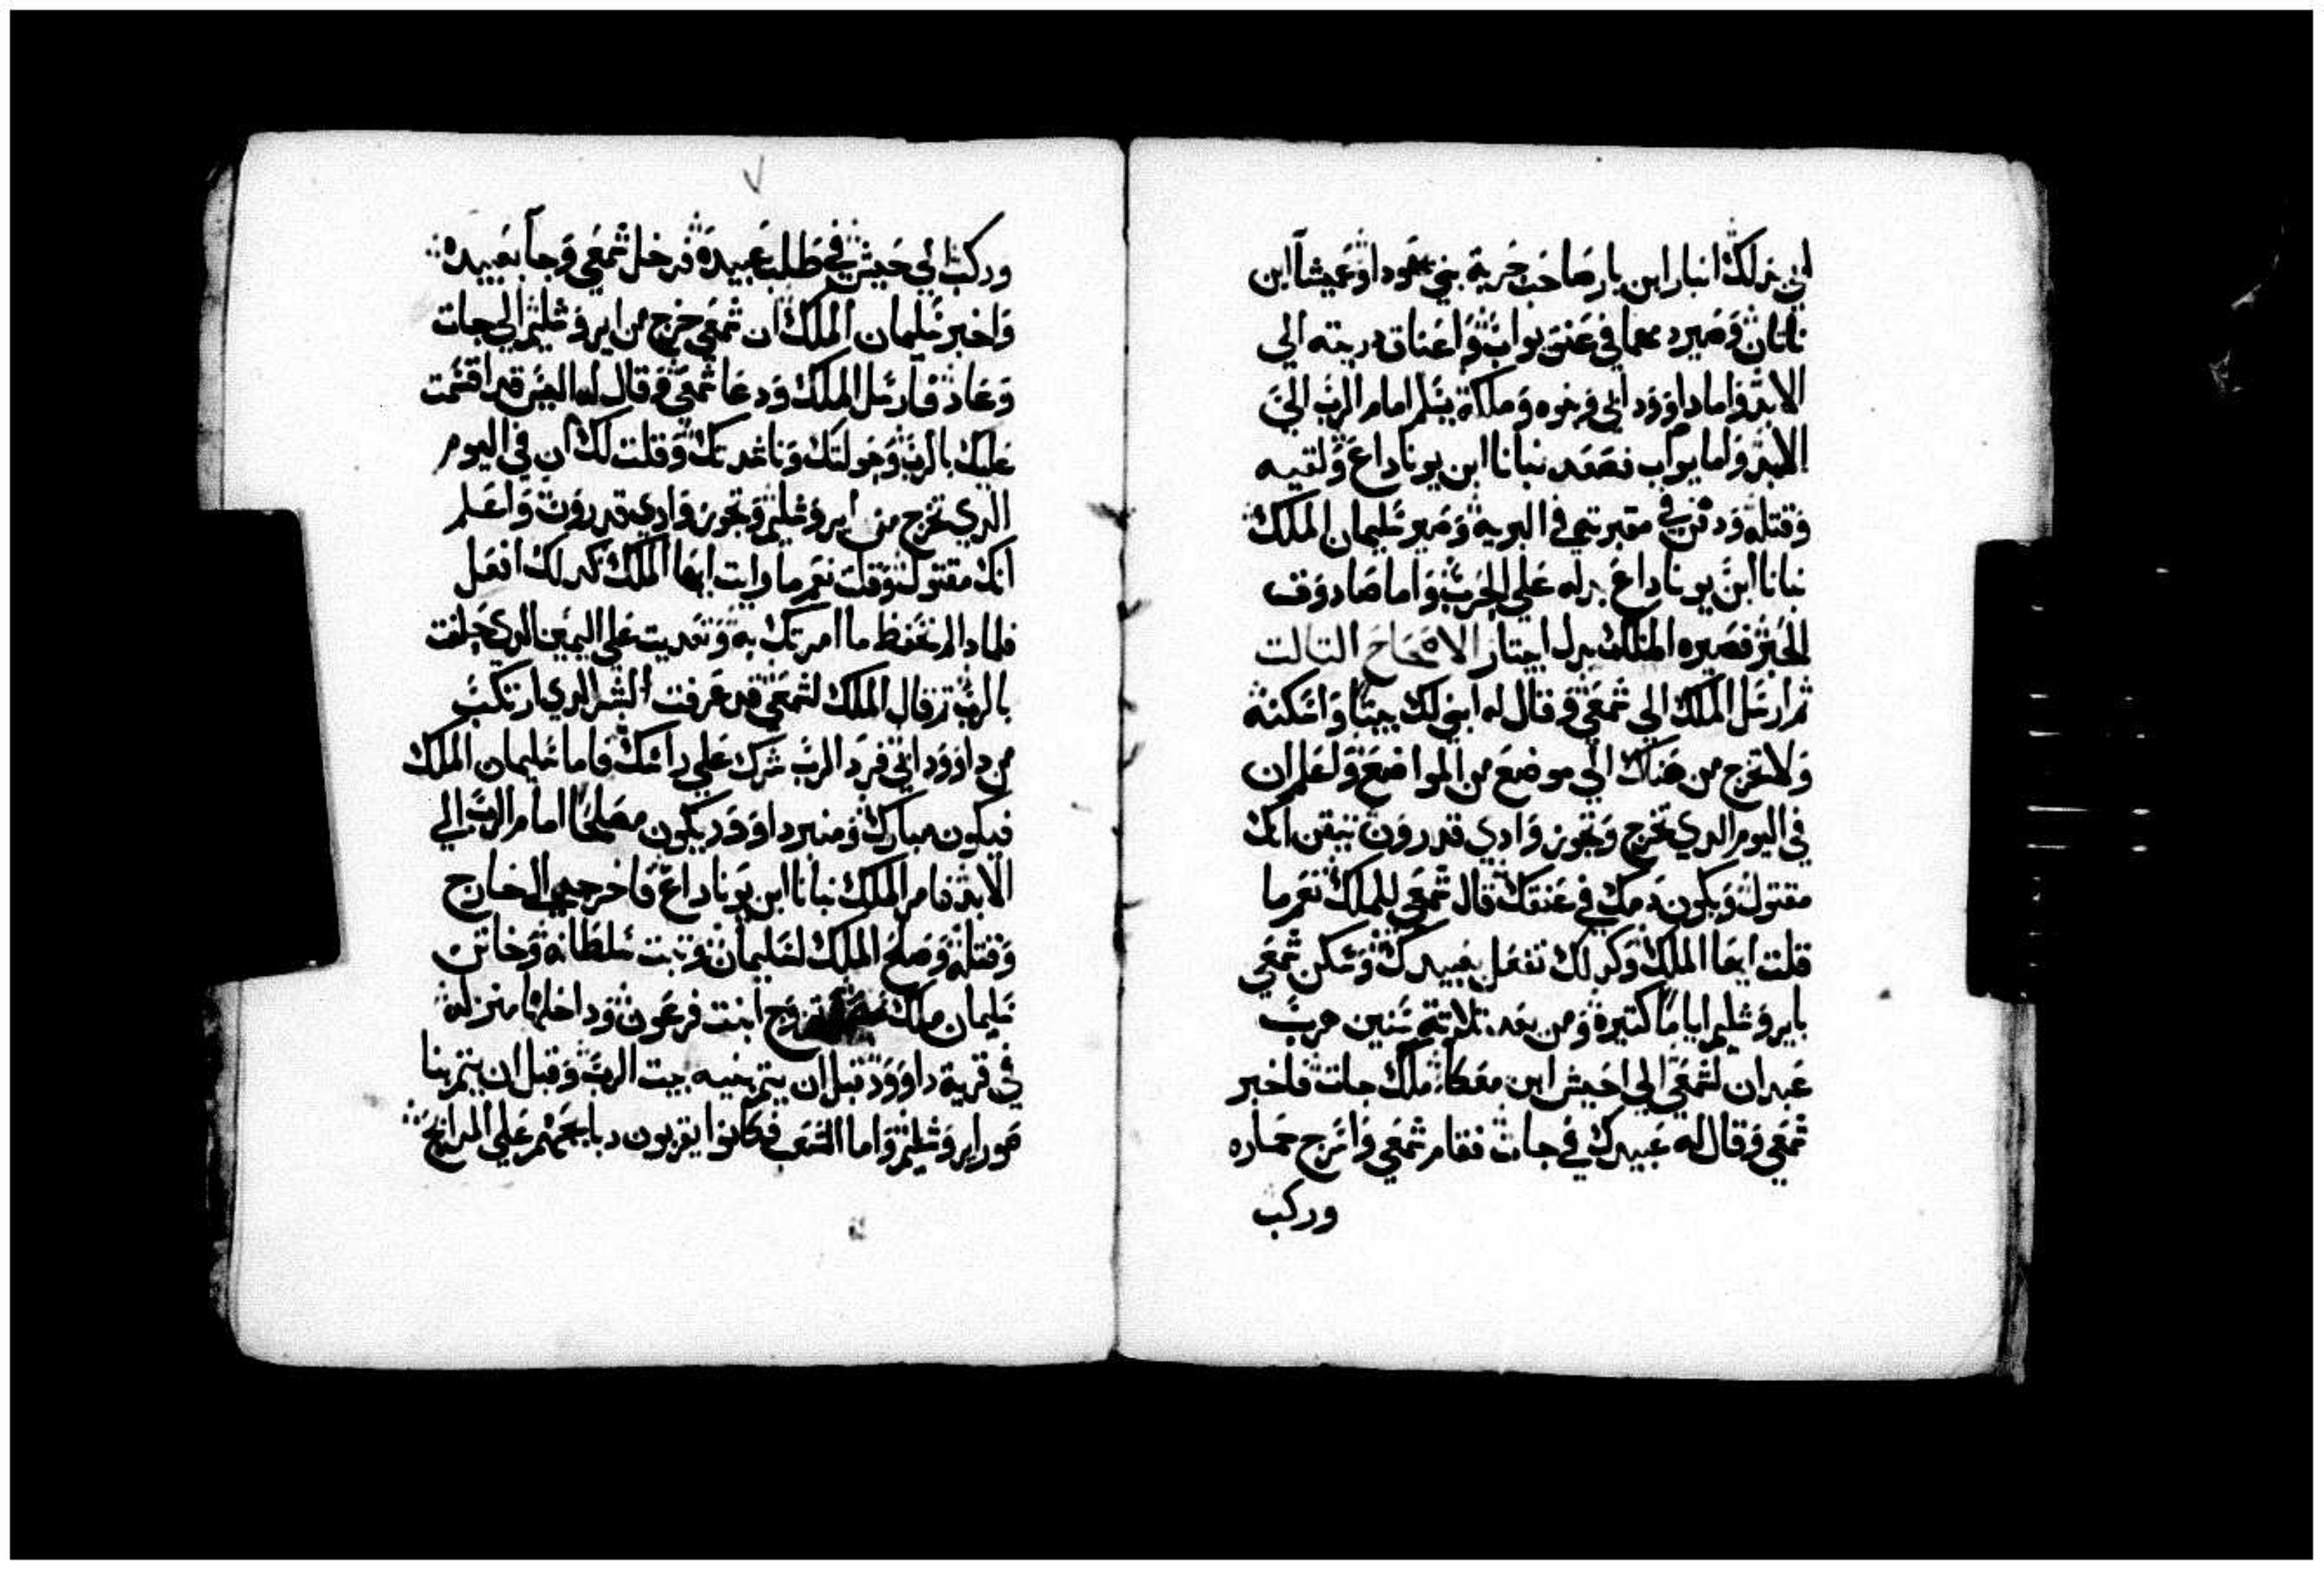 ابي نزلك انبار ابن بار صاحب حربة بني يهودا وعميشا ابن
نانان وصير دمهما في عنق يواب واعناق دريته الي
الابد واما داوود ابي فزنوه وملكة بسلم امام الرب الي
الابد ولما يواب فصعد نبانا ابن يوناداع ولقيه
وقتله ودفن في مقبرتي في البرية وصير سليمان الملك
نبانا ابن يوناداع بدله علي الحرب واما صادوف
الحبر فصيره الملك بدل ابيتار الاصحاح التالت
تم ارسل الملك الي شمعي وقال له ابني لك بيتا واسكنه
ولا تخرج من هناك الي موضع من المواضع واعلم ان
في اليوم الدي تخرج وتجوز وادي قدرون تيقن انك
مقتول ويكون دمك في عنقك قال شمعي للملك نعم ما
قلت ايها الملك وكدلك نفعل بعبيدك وسكن شمعي
بايروشليم اياما كتيره ومن بعد تلاتة سنين هرب
عبدان لشمعي الي اخيش ابن معكا ملك جات فاخبر
شمعي وقال له عبيدك في جات فقام شمعي واسرج حماره
وركب
وركب الي خيش في طلب عبيده فدخل شمعي وجا بعبيده
واخبر سليمان الملك ان شمعي خرج من ايروشليم الي جات
وعاد فارسل الملك ودعا شمعي وقال له اليس قد اقسمت
عليك بالرب وحولتك وناشدتك وقلت لك ان في اليوم
الدي تخرج من ايروشليم وتجوز وادي قدرون واعلم
انك مقتول وقلت نعم ما رايت ايها الملك كدلك افعل
فلمادا لم تحفظ ما امرتك به وتعديت علي اليمين الدي حلفت
بالرب تم قال الملك لشمعي قد عرفت الشر الدي ارتكب
من داوود ابي فرد الرب شرك علي راسك فاما سليمان الملك
فيكون مبارك ومنبر داوود يكون مصلحا امام الرب الي
الابد فامر الملك نبانا ابن يوناداع فاخرجه الي خارج
وقتله وصلح الملك لسليمان وتبت سلطانه وخاتن
سليمان ملك مصر تزوج ابنت فرعون ودا خلها منزله
في قرية داوود قبل ان يتم بنيه بيت الرب وقبل ان يتم بنا
صور ايروشليم واما الشعب فكانوا يقربون دبايحهم علي المدابح